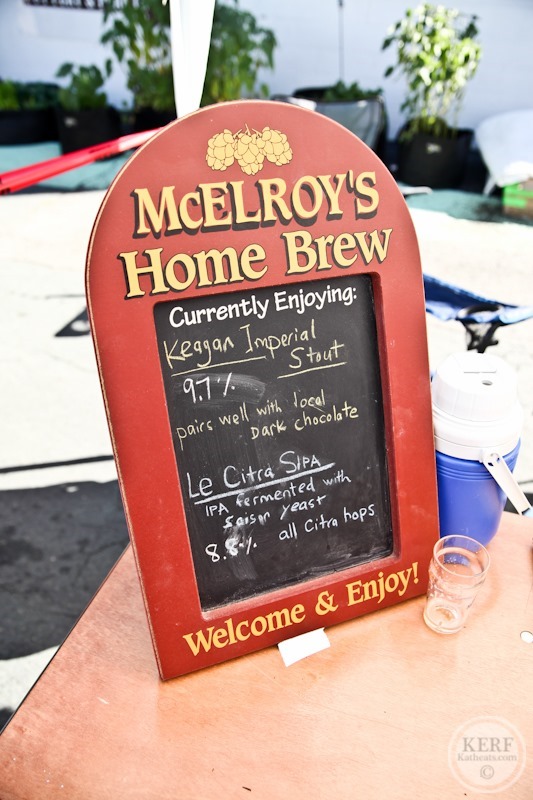 McELROY'S
Home Brew
Currently Enjoying:
Keagan Imperial
Stout
9.7%
pairs well with local
Dark chocolate
Le Citra SIPA
IPA fermented with
saison yeast
8.8% all Citra hops
Welcome & Enjoy!
KERF
Katheats.com
©